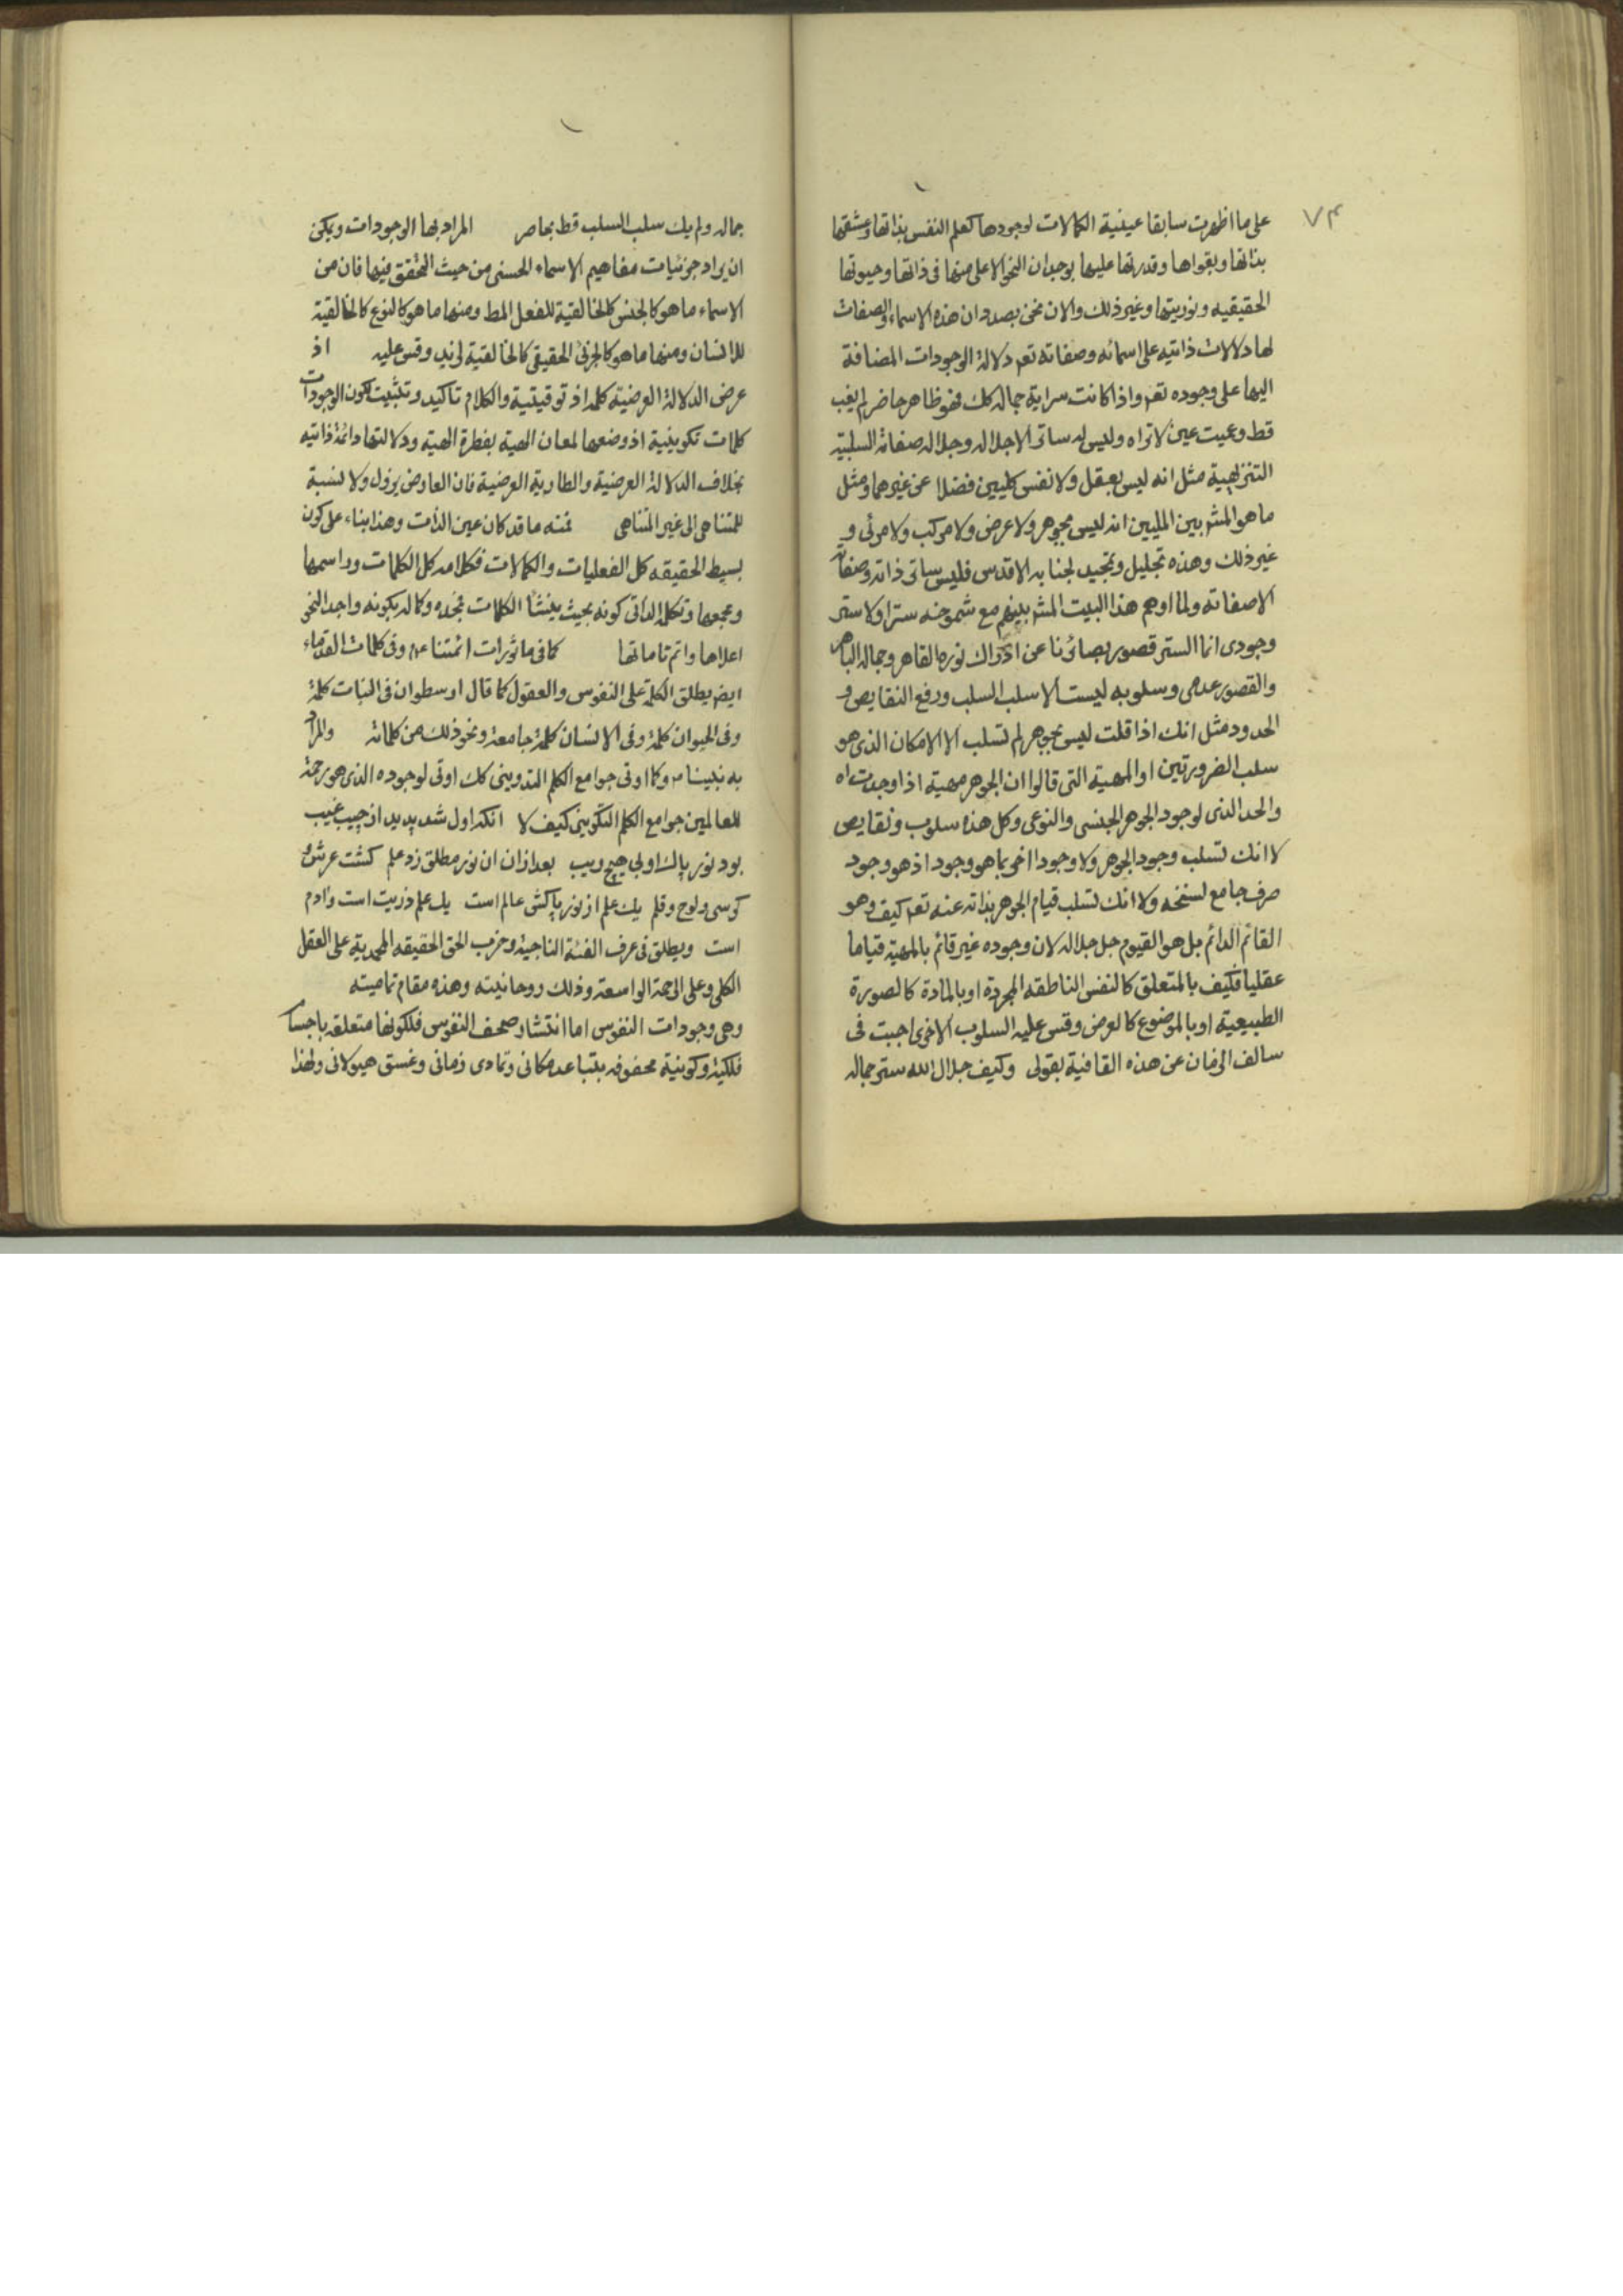 ۷۴
على ما اظهرت سابقا عينية الكمالات لوجودها كعلم النفس بذاتها وعشقها
بذاتها وبقواها وقدرتها عليها بوجدان النحو الاعلى منها فى ذاتها وحيوتها
الحقيقيه ونوريتها وغير ذلك والان نحن بصدد ان هذه الاسماء والصفات
لها دلالات ذاتيه على اسمائه وصفاته تعم دلالة الوجودات المضافة
اليها على وجوده تعم واذا كانت سراية جماله كك فهو ظاهر حاضر لم يغب
قط وعميت عين لا تراه وليس له ساتر الا جلاله وجلاله صفاته السلبية
التنزيهية مثل انه ليس بعقل ولا نفس كليين فضلا عن غيرهما ومثل
ما هو المشهر بين المليين انه ليس بجوهر ولا عرض ولا مركب ولا مرئى و
غير ذلك وهذه تجليل وتمجيد لجنابه الاقدس فليس ساتر ذاته وصفاته
الا صفاته ولما اوهم هذا البيت المشهر بينهم مع شموخه سترا ولا ستر
وجودى انما الستر قصور بصائرنا عن ادراك نوره القاهر وجماله الباهر
والقصور عدمى وسلوبه ليست الا سلب السلب ورفع النقايص و
الحدود مثل انك اذا قلت ليس بجوهر لم تسلب الا الامكان الذى هو
سلب الضرورتين او المهية التى قالوا ان الجوهر مهية اذا وجدت اه
والحد الذى لوجود الجوهر الجنسى والنوعى وكل هذه سلوب ونقايص
لا انك تسلب وجود الجوهر ولا وجودا اخر بما هو وجود اذ هو وجود
صرف جامع لسنخه ولا انك تسلب قيام الجوهر بذاته عنه تعم كيف وهو
القائم الدائم بل هو القيوم جل جلاله لان وجوده غير قائم بالمهية قياما
عقليا فكيف بالمتعلق كالنفس الناطقه المجردة او بالمادة كالصورة
الطبيعية او بالموضوع كالعرض وقس عليه السلوب الاخرى اجبت فى
سالف الزمان عن هذه القافية بقولى وكيف جلال الله ستر جماله
جماله ولم يك سلب السلب قط بحاصر المراد بها الوجودات ويمكن
ان يراد جزئيات مفاهيم الاسماء الحسنى من حيث التحقق فيها فان من
الاسماء ما هو كالجنس كالخالقية للفعل المط ومنها ما هو كالنوع كالخالقية
للانسان ومنها ما هو كالجزئى الحقيقى كالخالقية لزيد وقس عليه اذ
عرض الدلالة العرضية كلمة اذ توقيتية والكلام تاكيد وتثبيت لكون الوجودات
كلمات تكوينية اذ وضعها لمعان الهية بفطرة الهية ودلالتها دائمة ذاتيه
بخلاف الدلالة العرضية والطارية العرضية فان العارض يزول ولا نسبة
للمتناهى الى غير المتناهى فمنه ما قد كان عين الذات وهذا بناء على كون
بسيط الحقيقه كل الفعليات والكمالات فكلامه كل الكلمات وراسمها
ومجمعها وتكلمه الذاتى كونه بحيث ينشأ الكلمات مجده وكماله بكونه واجد النحو
اعلاها واتم تاماتها كما فى ماثورات ائمتنا ع وفى كلمات القدماء
ايضا يطلق الكلمة على النفوس والعقول كما قال ارسطو ان فى النبات كلمة
وفى الحيوان كلمة وفى الانسان كلمة جامعة ونحو ذلك من كلماته والمراد
به نبينا ص وكما اوتى جوامع الكلم التدوينى كك اوتى لوجوده الذى هو رحمة
للعالمين جوامع الكلم التكوينى كيف لا انكه اول شد پديد از جيب غيب
بود نور پاك او بى هيچ ريب بعد ازان ان نور مطلق زد علم گشت عرش و
كرسى ولوح وقلم يك علم از نور پاكش عالم است يك علم ذريت است وادم
است ويطلق فى عرف الفئة الناجية وحزب الحق الحقيقه المحمدية على العقل
الكلى وعلى الرحمة الواسعة وذلك روحانيته وهذه مقام تماميته
وهى وجودات النفوس اما انتشار صحف النفوس فلكونها متعلقه باجسا
فلكية وكونية محفوفه بتباعد مكانى وتمادى زمانى وغسق هيولانى ولهذا